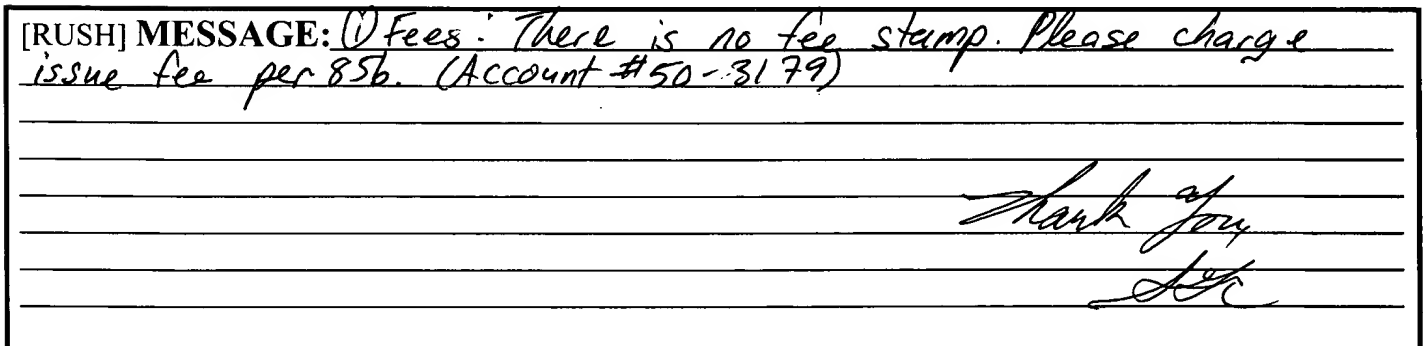 [RUSH] MESSAGE: ① Fees: There is no fee stamp. Please charge
issue fee per 85b. (Account #50-3179)
Thank You,